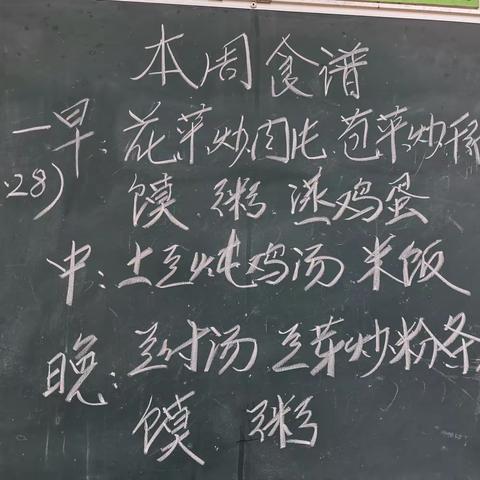 本周食谱
一早：花菜炒肉片、苞菜炒
.28)
馍 粥 蒸鸡蛋
中：土豆炖鸡汤 米饭
晚：豆汤 豆芽炒粉条
馍 粥